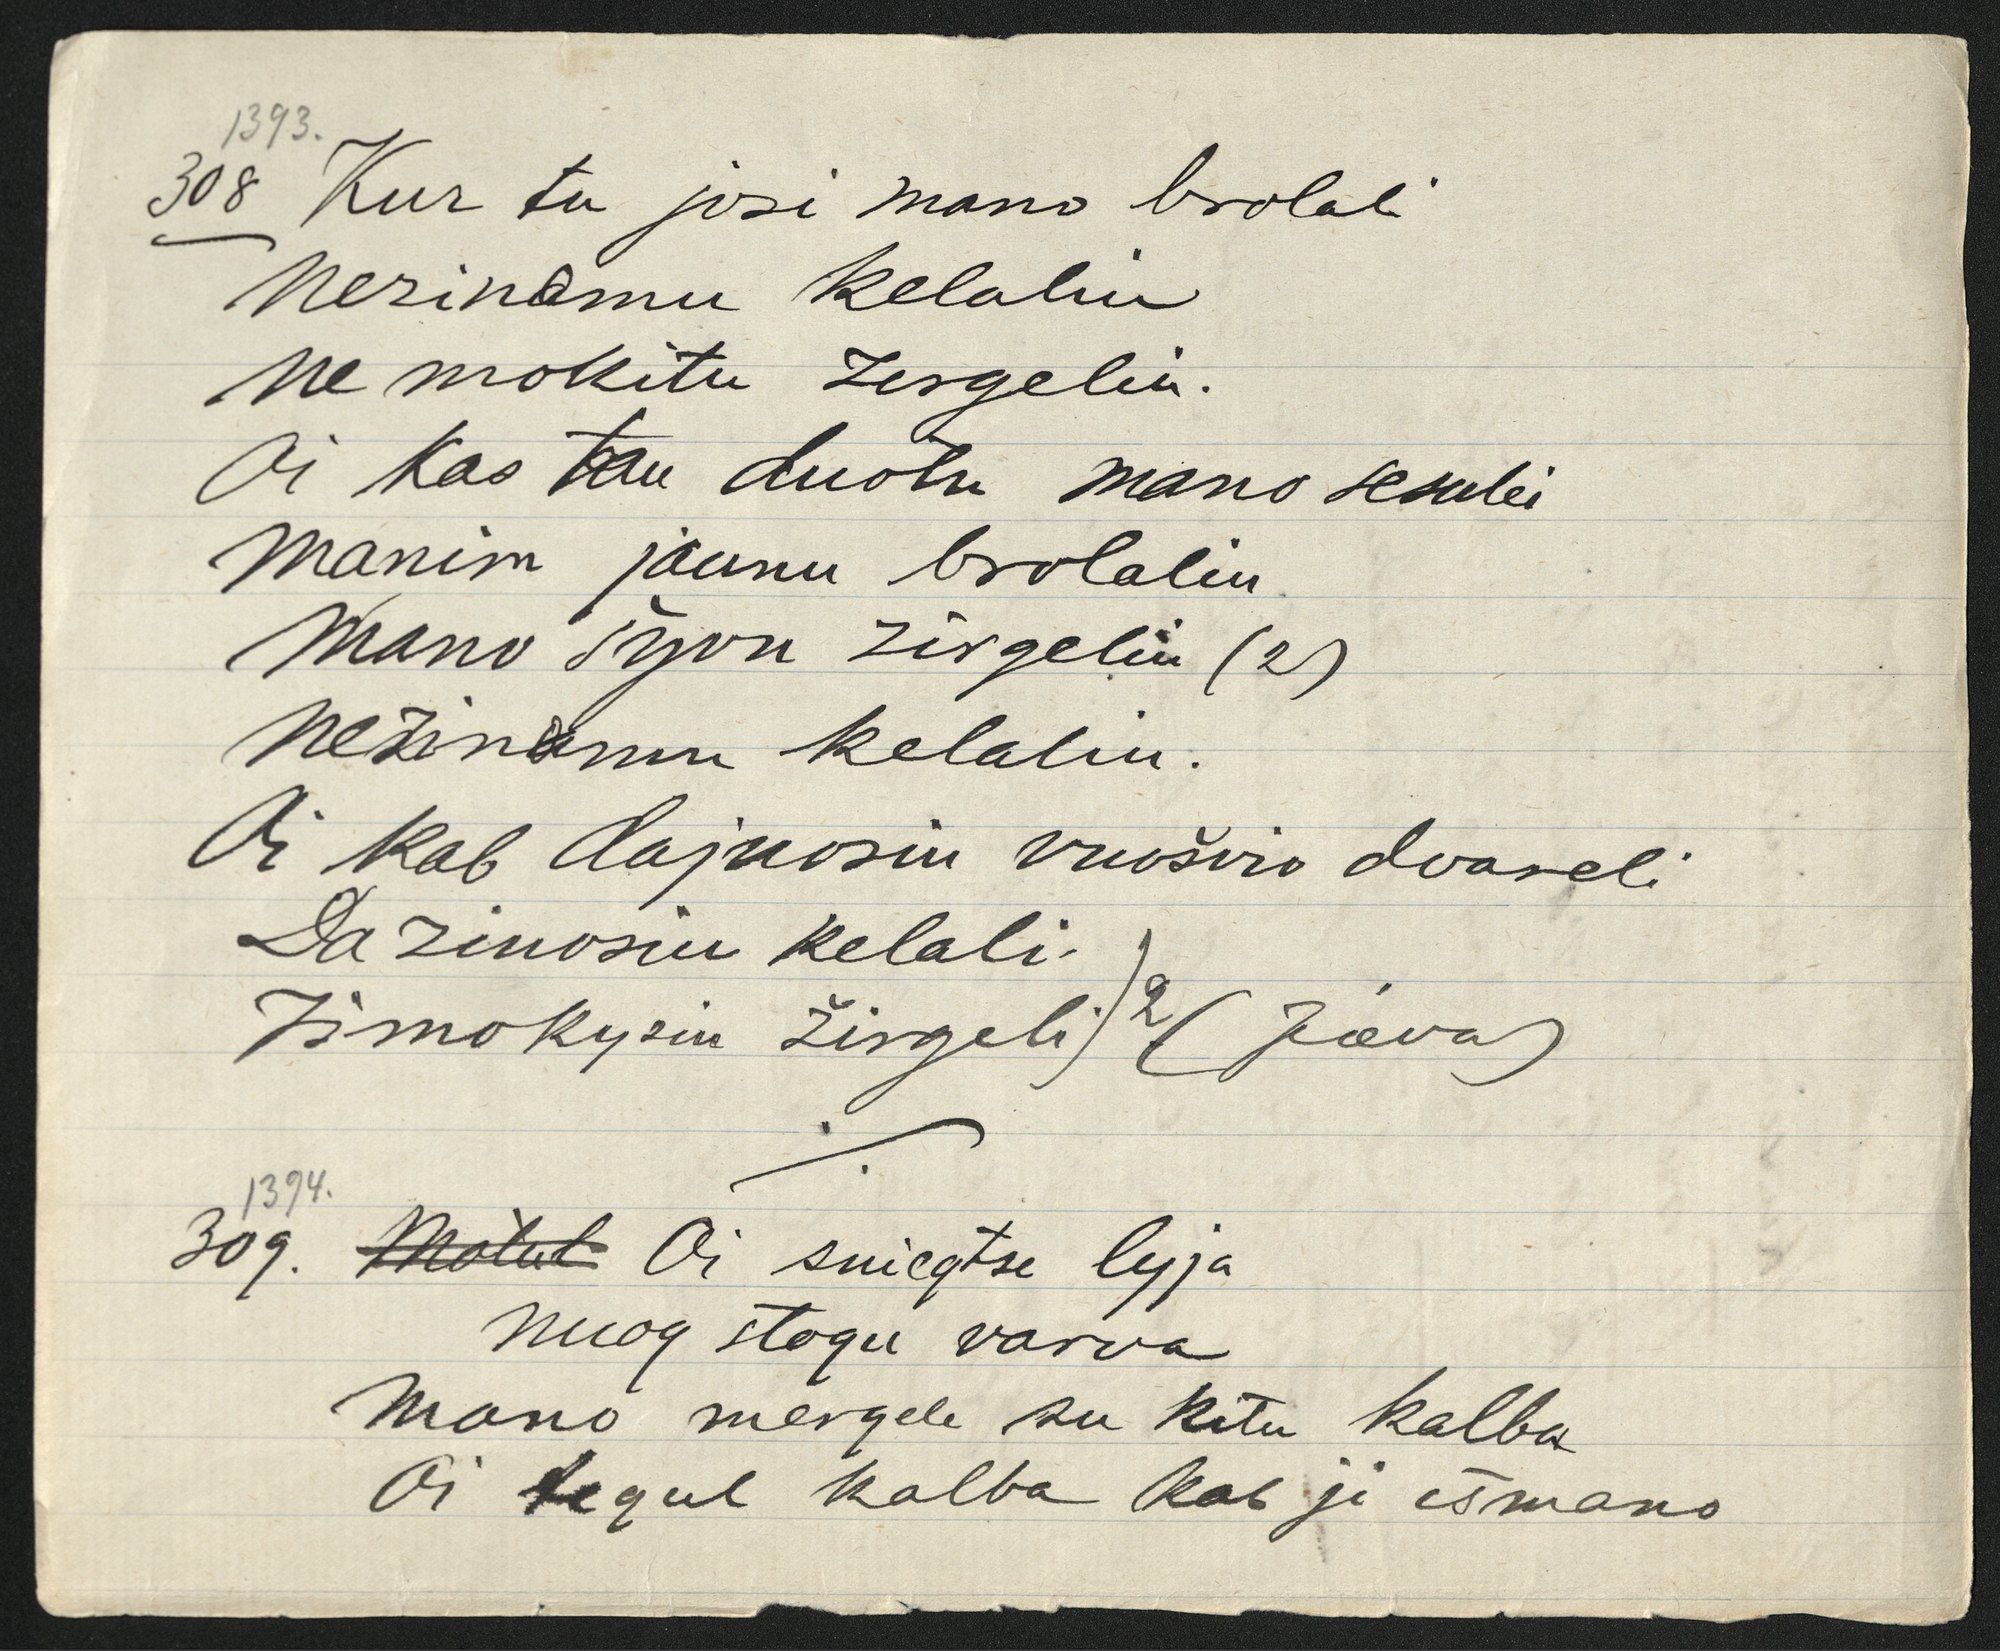 1393.
308 Kur tu josi mano brolali
Nezinamu kelaliu
Ne mokitu zergeliu.
Oi kas tau duotu mano seselei
Manim jaunu brolaliu
Mano šyvu zirgeliu (2)
Nežinamu kelaliu.
Oi kab dajuosiu vuošvio dvareli
Dazinosiu kelali.
Išmokysiu žirgeli) 2 (
1394.
309. Oi sniegtse lyja
Nuog stogu varva
Mano mergele su kitu kalba
Oi tegul kalba kab ji išmano